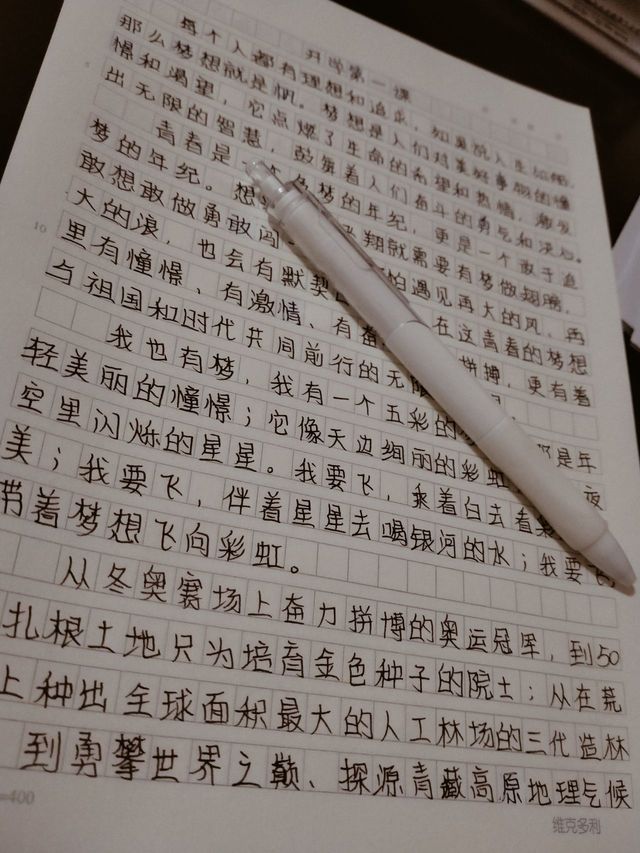 开学第一课
每个人都有理想和追求，如果说人生如船，
那么梦想就是帆。梦想是人们对美好事物的憧
憬和渴望，它点燃了生命的希望和热情，激发
出无限的智慧，鼓舞着人们奋斗的勇气和决心。
青春是 色梦的年纪，更是一个敢于追
梦的年纪。想 翔就需要有梦做翅膀，
敢想敢做勇敢闯 怕遇见再大的风，再
大的浪，也会有默契 在这青春的梦想
里有憧憬、有激情、有奋 拼搏，更有着
与祖国和时代共同前行的无限
我也有梦，我有一个五彩的 是年
轻美丽的憧憬；它像天边绚丽的彩虹 夜
空里闪烁的星星。我要飞，乘着白云看
美；我要飞，伴着星星去喝银河的水；我要飞，
带着梦想飞向彩虹。
从冬奥赛场上奋力拼博的奥运冠军，到50
扎根土地只为培育金色种子的院士；从在荒
上种出全球面积最大的人工林场的三代造林
到勇攀世界之巅、探源青藏高原地理气候
5
10
=400
维克多利